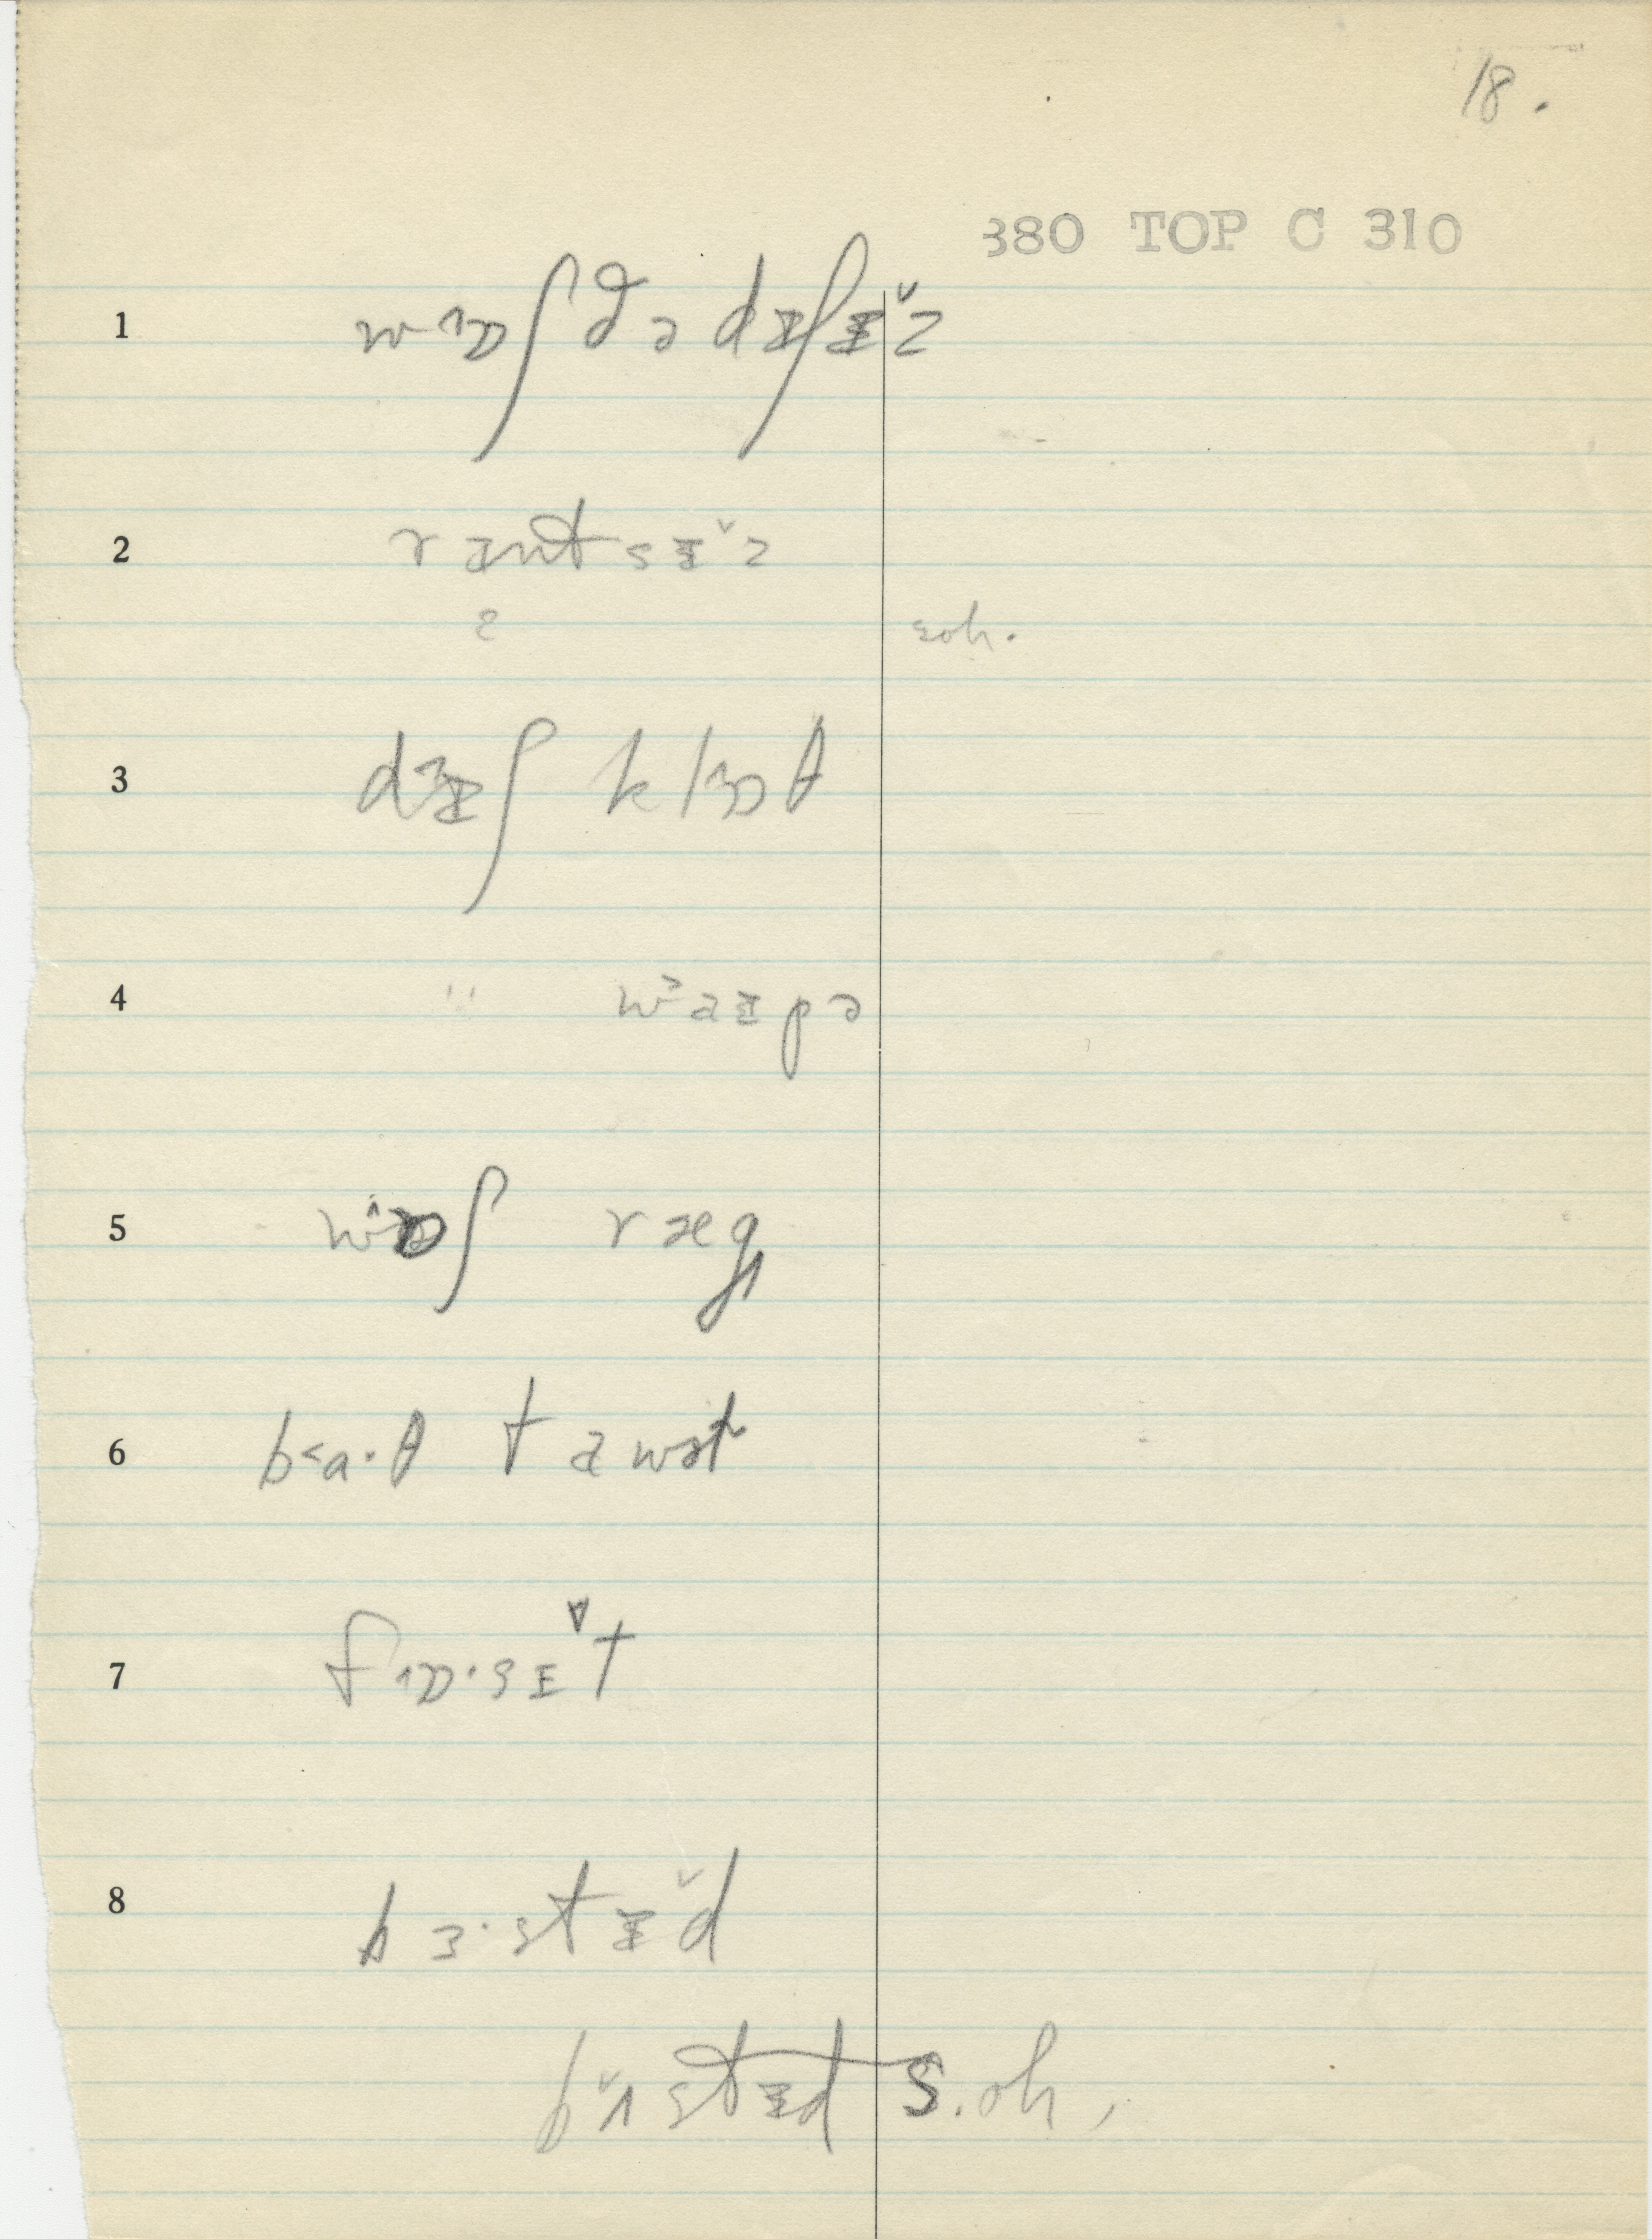 18.
380 TOP C 310
1 w^ɒʃ ðə dɪʃɪ˅z
2 rɪntsɪ˅z
ə soh.
3 dɪʃ klɒθ
4 " w˃aɪpə
5 w^ɒʃ ræg
6 b˂a·θ tawəl
7 fɒ·sɪ˅t
8 bɜ·stɪ˅d
b˅ʌstɪd s.oh,